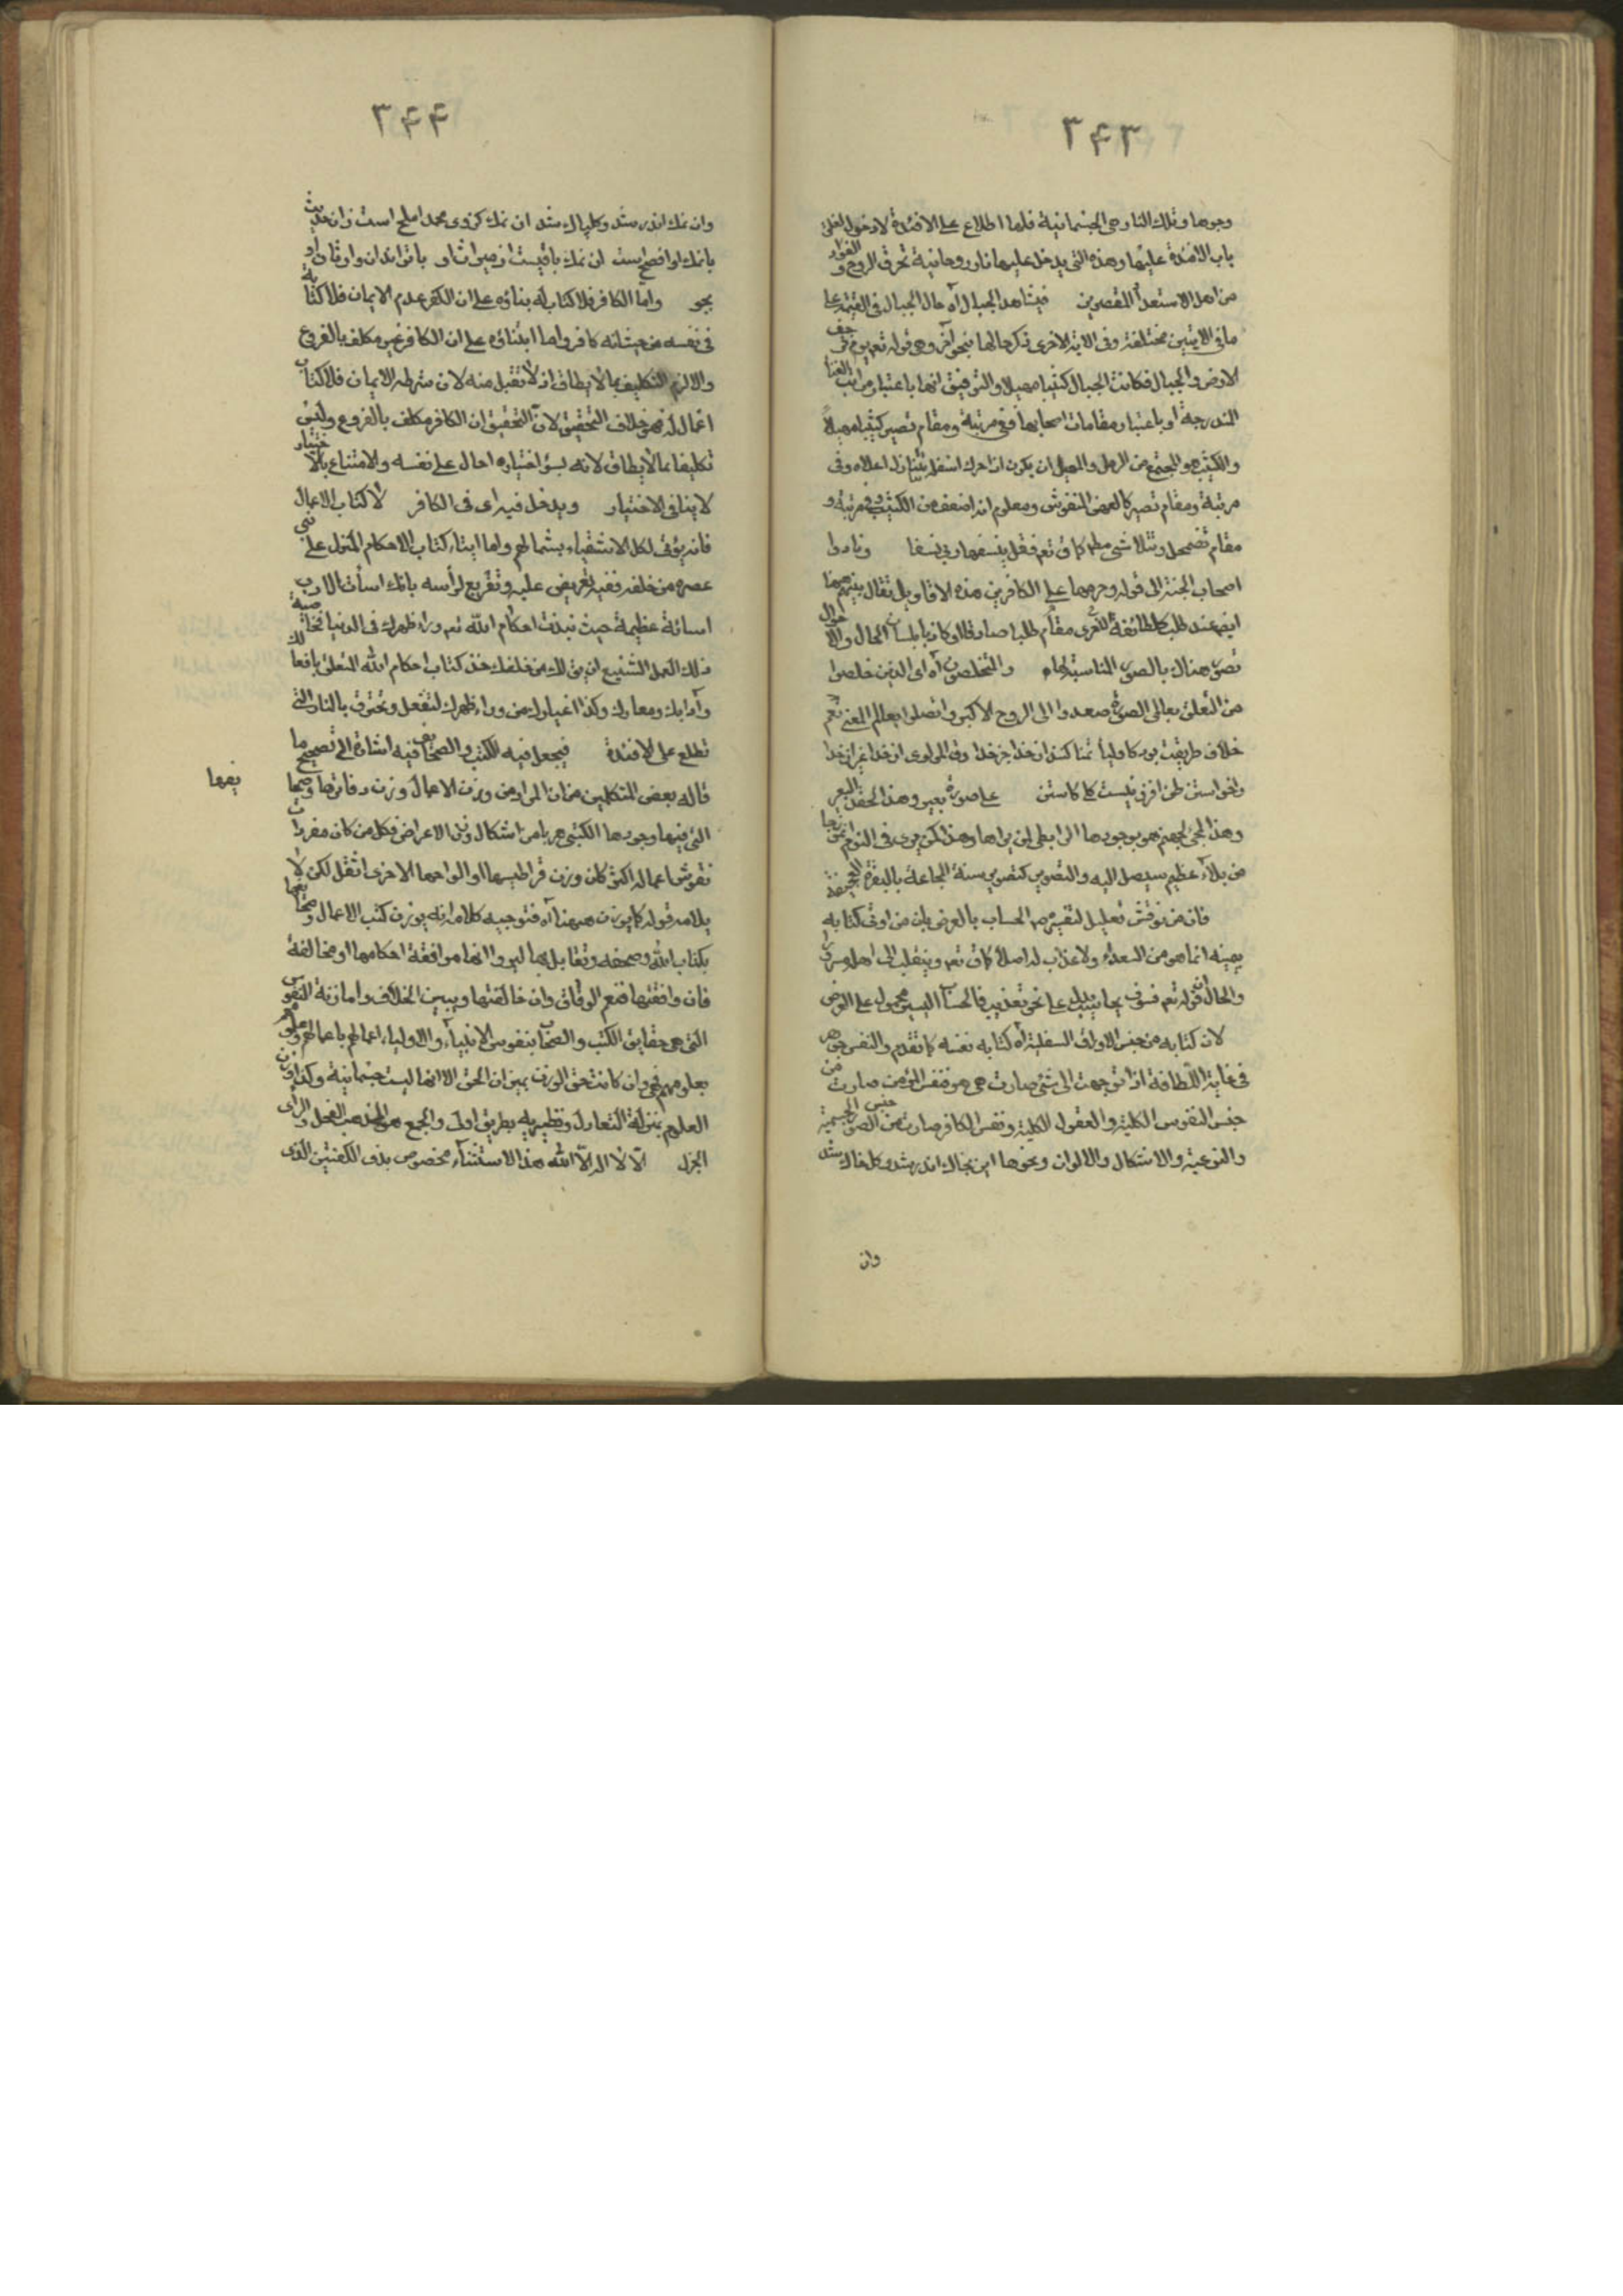 ۳۴۳
وجوهها وتلك النار هي الجسمانية فلها اطلاع على الافئدة لا دخول لغلق
باب الافئدة عليها وهذه التي يدخل عليها نار روحانية تحرق الروح والفؤاد
من اهل الاستعداد المقصرين فيشاهد الجبال آه حال الجبال في القيمة على
ما في الايتين مختلفة وفي الاية الاخرى ذكر حالها بنحو آخر وهي قوله تعم يوم ترجف
الارض والجبال فكانت الجبال كثيبا مهيلا والتوفيق انها باعتبار مراتب الفنا
المتدرجة او باعتبار مقامات اصحابها ففي مرتبة ومقام تصير كثيبا مهيلا
والكثيب هو المجتمع من الرمل والمهيل ان يكون اذا حرك اسفله ينازل اعلاه وفي
مرتبة ومقام تصير كالعهن المنفوش ومعلوم انه اضعف من الكثيب وفي مرتبة و
مقام تضمحل وتتلاشى مطلقا كما ق تعم فقل ينسفها ربي نسفا ونادوا
اصحاب الجنة الى قوله حرمهما على الكافرين هذه الاقاويل تقال بينهم ههنا
ايض عند طلب كل طائفة للاخرى مقام طلبا صادقا او كاذبا بلسان الحال والاحوال
تصور هناك بالصور المناسبة لها والمتخلصون آه اي الذين خلصوا
من التعلق بعالم الصورة صعدوا الى الروح الاكبر واتصلوا بعالم المعنى نعم
خلاف طريقت بود كاوليا تمنا كنند از خدا جز خدا وفي المولوي از خدا غير از خدا
را خواستن ظن افزونيست كلي كاستن على صورة بعير وهذا لحقد البعير
وهذا المجئ لجهنم هو بوجودها الرابطي لمن يراها وهذا كمن يرى في النوم انموذجا
من بلاء عظيم سيصل اليه والتصوير كتصوير سنة المجاعة بالبقرة العجيفة
فان من نوقش تعليل لتفسيره الحساب بالعرض بان من اوتي كتابه
بيمينه انما هو من السعداء ولا عذاب له اصلا كما ق تعم وينقلب الى اهله مسرورا
والحال ان قوله تعم فسوف يحاسب يدل على نحو تعذيب فالحساب اليسير محمول على العرض
لان كتابه من جنس الاوراق السفلية آه كتابه نفسه كما تقدم والنفس جوهر
في غاية اللطافة اذا توجهت الى شئ صارت هي هو فنفس المؤمن صارت من
جنس النفوس الكلية والعقول الكلية ونفس الكافر صارت من جنس الصور الجسمية
والنوعية والاشكال والالوان ونحوها اين بخاك اندر شد وكل خاك شد
وان
۳۴۴
وان نمك اندر شد وكل پاك شد ان نمك كز وى محمد املح است زان حديث
بانمك او افصح است ان نمك باقيست از ميراث او باتواند ان وارثان او
بجو واما الكافر فلا كتاب له بناؤه على ان الكفر عدم الايمان فلا كتابة
في نفسه من حيث انه كافر واما ابتناؤه على ان الكافر غير مكلف بالفروع
والا لزم التكليف بما لا يطاق اذ لا تقبل منه لان شرطه الايمان فلا كتاب
اعمال له فهو خلاف التحقيق لان التحقيق ان الكافر مكلف بالفروع وليس
تكليفا بما لا يطاق لانه بسوء اختياره احال على نفسه والامتناع بالاختيار
لا ينافي الاختيار ويدخل فيه اى في الكافر لا كتاب الاعمال
فانه يؤتى لكل الاشقياء بشمالهم واما ايتاء كتاب الاحكام المنزل على نبي
عصره من خلفه ففيه تعريض عليه وتقريع لرأسه بانك اسأت الادب
اسائة عظيمة حيث نبذت احكام الله تعم وراء ظهرك في الدنيا
ذلك العمل الشنيع ان يق لك من خلفك خذ كتاب احكام الله المتعلق بافعالك
وآدابك ومعارك وكذا اغيارك من وراء ظهرك لتنفعل وتحترق بالنار التي
تطلع على الافئدة فيجعل فيه الكتب والصحايف فيه اشارة الى تصحيح ما
قاله بعض المتكلمين من ان المراد من وزن الاعمال وزن دفاترها وصحايفها
التي فيها وجودها الكتبي هربا من اشكال وزن الاعراض فكل من كان مفردات
نقوش اعماله اكثر كان وزن قراطيسها او الواحها الاخرى اثقل لكن لا
يلائمه قوله كما يوزن ههنا آه فتوجيه كلامه انه يوزن كتب الاعمال وصحايفها
بكتاب الله وصحفه وتقابل بها ليروا انها موافقة احكامها او مخالفة
فان وافقتها فنعم الوفاق وان خالفتها ويبين الخلاف واما زنة النفوس
التي هي حقايق الكتب والصحايف بنفوس الانبياء والاولياء واعمالهم باعمالهم وعلومهم
بعلومهم فهي وان كانت حق الوزن بميزان الحق الا انها ليست جسمانية وكذا وزن
العلوم بمنزلة التعادل ونظيريه بطريق اولى والجمع هو المذهب الفحل والراى
الجزل الا لا اله الا الله هذا الاستثناء مخصوص بذى الكفتين الذى
يفها